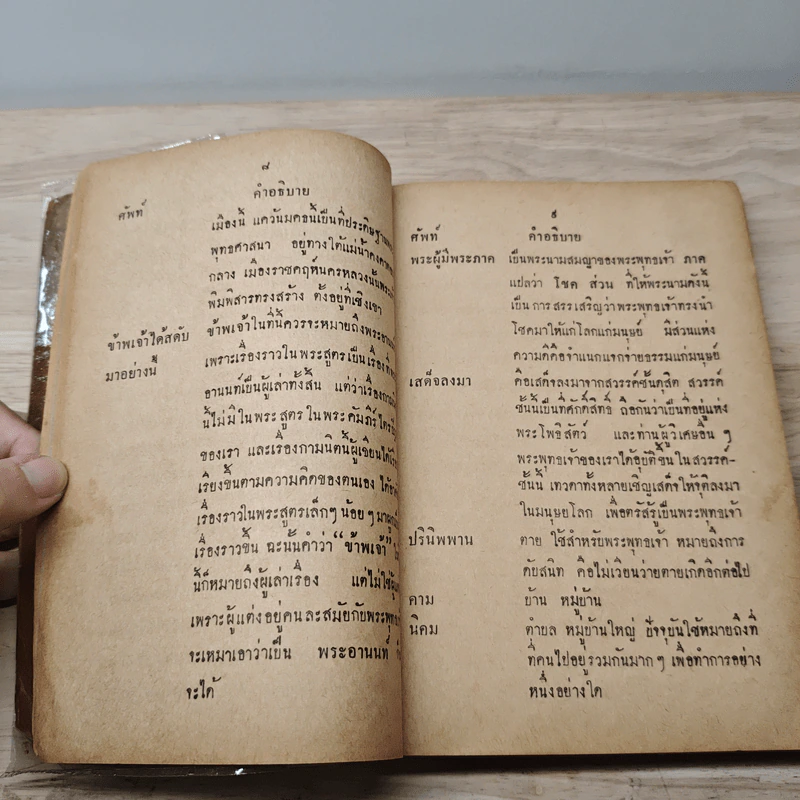 ๘
ศัพท์ คำอธิบาย
เมืองนี้ แคว้นมคธนี้เป็นที่ประดิษฐาน
พุทธศาสนา อยู่ทางใต้แม่น้ำคงคา
กลาง เมืองราชคฤห์นครหลวงนั้นพระเจ้า
พิมพิสารทรงสร้าง ตั้งอยู่ที่เชิงเขา
ข้าพเจ้าได้สดับ ข้าพเจ้าในที่นี้ควรจะหมายถึงพระอานนท์
มาอย่างนี้ เพราะเรื่องราวในพระสูตรเป็นเรื่องที่พระ
อานนท์เป็นผู้เล่าทั้งสิ้น แต่ว่าเรื่องกามนิต
นี้ไม่มีในพระสูตร ในพระคัมภีร์ไตรปิฎก
ของเรา และเรื่องกามนิตนี้ผู้เขียนได้เรียบ
เรียงขึ้นตามความคิดของตนเอง ได้
เรื่องราวในพระสูตรเล็กๆ น้อยๆ มาผูก
เรื่องราวขึ้น ฉะนั้นคำว่า "ข้าพเจ้า"
นี้ก็หมายถึงผู้เล่าเรื่อง แต่ไม่ใช่ผู้
เพราะผู้แต่งอยู่คนละสมัยกับพระพุทธ
จะเหมาเอาว่าเป็น พระอานนท์ ก็
จะได้
๙
ศัพท์ คำอธิบาย
พระผู้มีพระภาค เป็นพระนามสมญาของพระพุทธเจ้า ภาค
แปลว่า โชค ส่วน ที่ให้พระนามดังนี้
เป็นการสรรเสริญว่าพระพุทธเจ้าทรงนำ
โชคมาให้แก่โลกแก่มนุษย์ มีส่วนแห่ง
ความดีคือจำแนกแจกจ่ายธรรมแก่มนุษย์
เสด็จลงมา คือเสด็จลงมาจากสวรรค์ชั้นดุสิต สวรรค์
ชั้นนี้เป็นที่ศักดิ์สิทธิ์ ถือกันว่าเป็นที่อยู่แห่ง
พระโพธิสัตว์ และท่านผู้วิเศษอื่น ๆ
พระพุทธเจ้าของเราได้อุบัติขึ้นในสวรรค์-
ชั้นนี้ เทวดาทั้งหลายเชิญเสด็จให้จุติลงมา
ในมนุษยโลก เพื่อตรัสรู้เป็นพระพุทธเจ้า
ปรินิพพาน ตาย ใช้สำหรับพระพุทธเจ้า หมายถึงการ
ดับสนิท คือไม่เวียนว่ายตายเกิดอีกต่อไป
คาม บ้าน หมู่บ้าน
นิคม ตำบล หมู่บ้านใหญ่ ปัจจุบันใช้หมายถึงที่
ที่คนไปอยู่รวมกันมากๆ เพื่อทำการอย่าง
หนึ่งอย่างใด